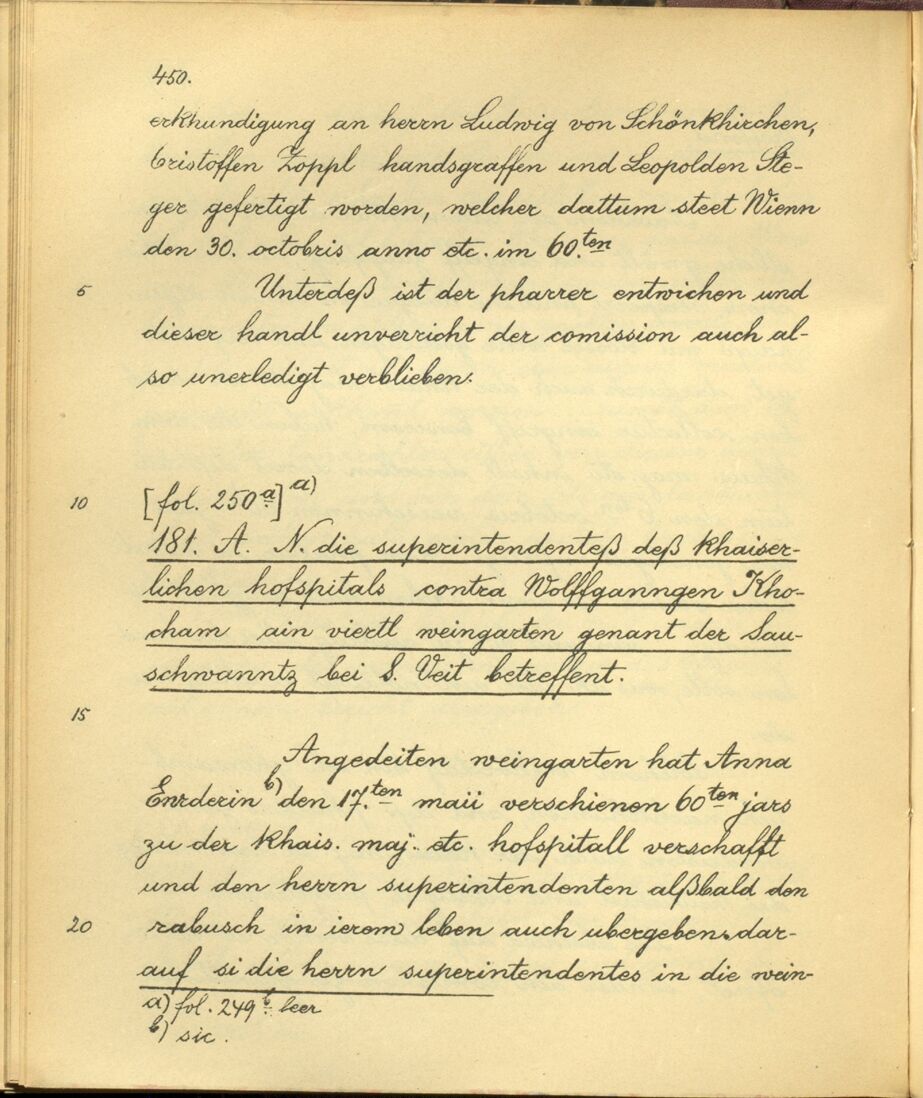 450.
erkhundigung an herrn Ludwig von Schönkhirchen,
Cristoffen Zoppl handsgraffen und Leopolden Ste-
ger gefertigt worden, welcher dattum steet Wienn
den 30. octobris anno etc. im 60.ten
5 Unterdeß ist der pharrer entwichen und
dieser handl unverricht der comission auch al-
so unerledigt verblieben.
10 [fol. 250a] a)
181. A. N. die superintendenteß deß khaiser-
lichen hofspitals contra Wolffganngen Kho-
cham ain viertl weingarten genant der Sau-
schwanntz bei S. Veit betreffent.
15
Angedeiten weingarten hat Anna
Enrderin b) den 17.ten maii verschienen 60ten jars
zu der khais. maj. etc. hofspitall verschafft
und den herrn superintendenten alßbald den
20 rabusch in ierem leben auch ubergeben, dar-
auf si die herrn superintendentes in die wein-
a) fol. 249b leer
b) sic.